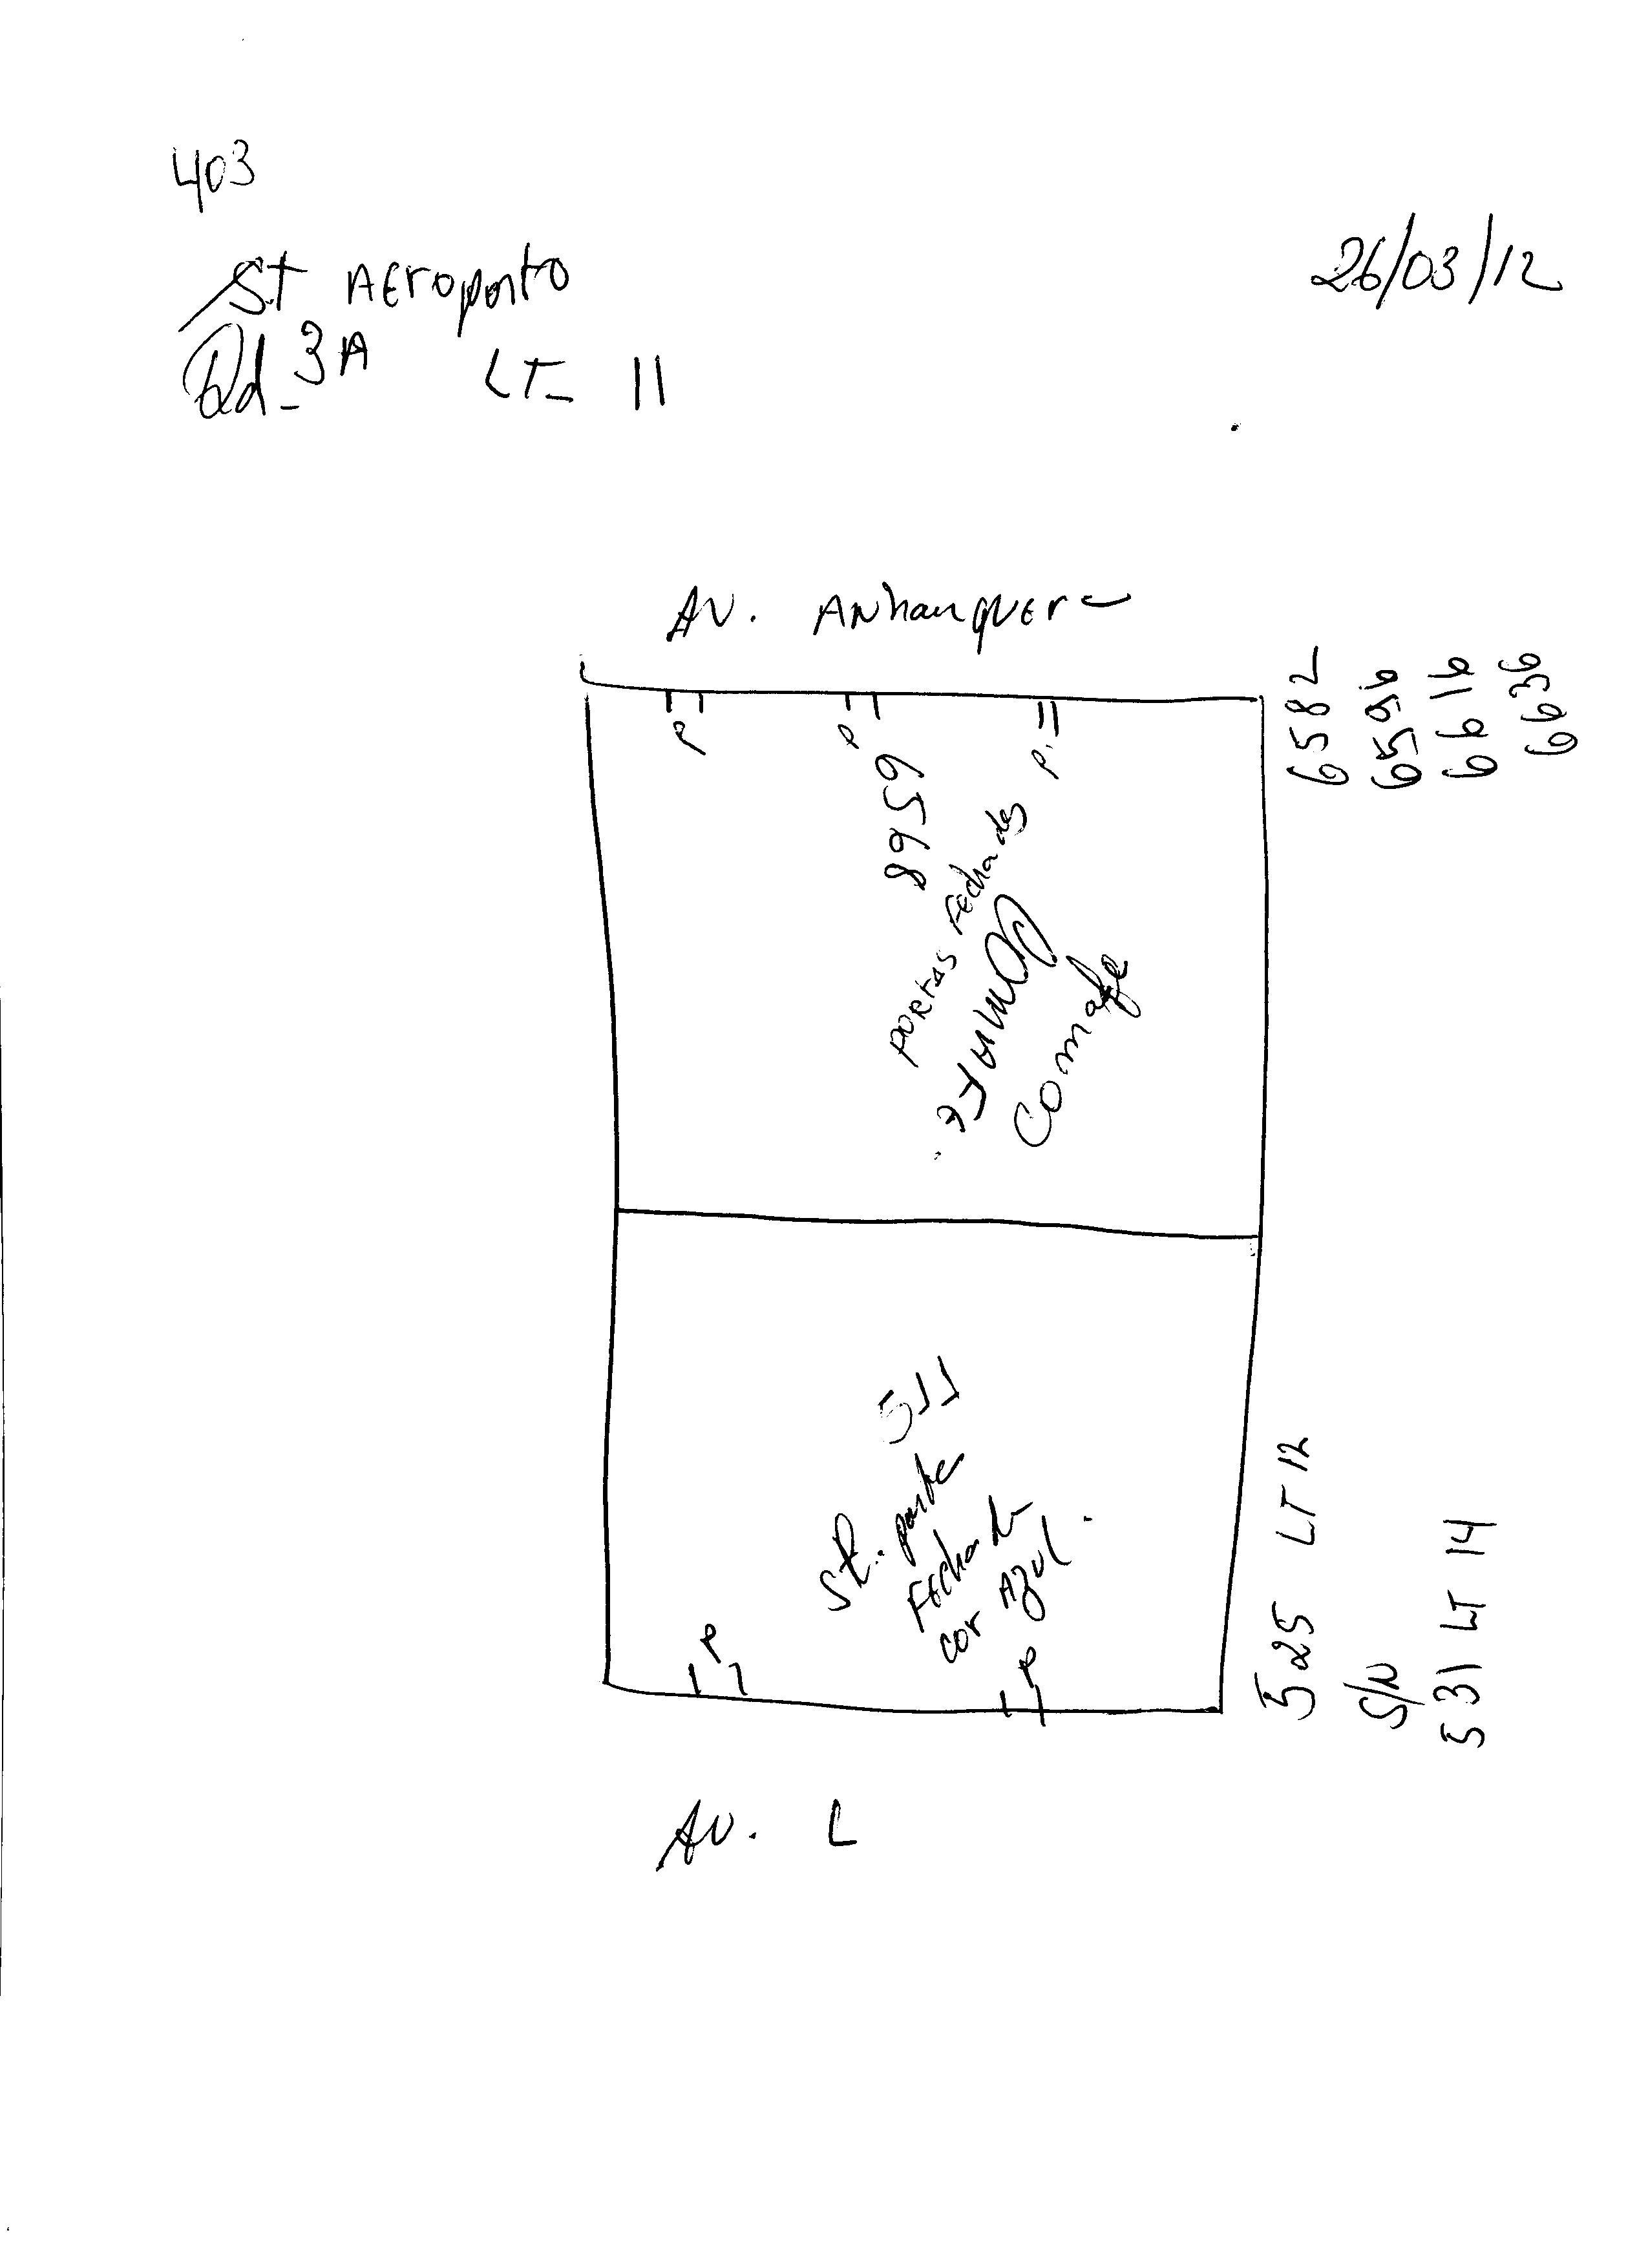 403
St Aeroporto
26/03/12
Qd_ 3A LT_ 11
AV. Anhanguera
P P P.
6568
Portas Fechadas
Comafe
6582
6596
6616
6636
511
St. porta
Fechada
cor Azul.
P P
525 LT 12
S/N
531 LT 14
AV. L